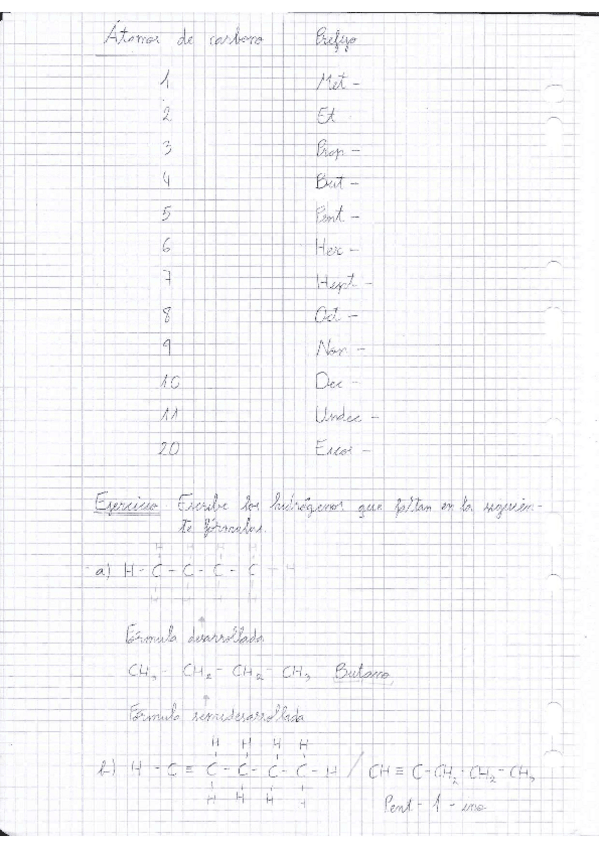 Átomos de carbono Prefijo
1 Met -
2 Et
3 Prop -
4 But -
5 Pent -
6 Hex -
7 Hept -
8 Oct -
9 Non -
10 Dec -
11 Undec -
20 Eicos -
Ejercicio Escribe los hidrógenos que faltan en la siguien-
te fórmulas.
H H H H
a) H - C - C - C - C - H
H H H H
Fórmula desarrollada
CH3 - CH2 - CH2 - CH3 Butano
Fórmula semidesarrollada
H H H H
b) H - C ≡ C - C - C - C - H / CH ≡ C - CH2 - CH2 - CH3
H H H H
Pent - 1 - ino